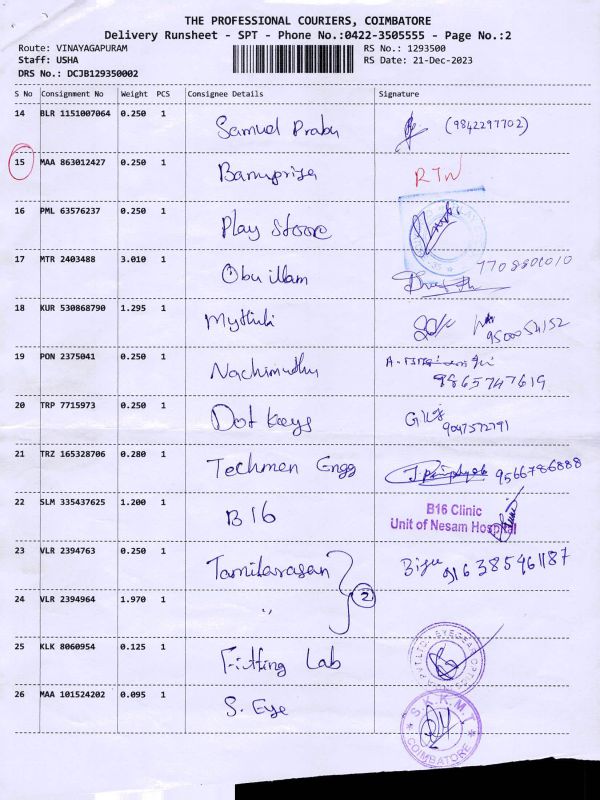 THE PROFESSIONAL COURIERS, COIMBATORE
Delivery Runsheet - SPT - Phone No.:0422-3505555 - Page No.:2
Route: VINAYAGAPURAM RS No.: 1293500
Staff: USHA RS Date: 21-Dec-2023
DRS No.: DCJB129350002
S No Consignment No Weight PCS Consignee Details Signature
14 BLR 1151007064 0.250 1 Samud Prabu (9842297702)
15 MAA 863012427 0.250 1 Banupriya RTN
16 PML 63576237 0.250 1 Play Stoore
17 MTR 2403488 3.010 1 Obu illam
18 KUR 530868790 1.295 1 Mythili 9500054152
19 PON 2375041 0.250 1 Nachimuthu 9865747619
20 TRP 7715973 0.250 1 Dot Kays 9047572791
21 TRZ 165328706 0.280 1 Techmen Engg 9566786888
22 SLM 335437625 1.200 1 B16 B16 Clinic
Unit of Nesam Hospital
23 VLR 2394763 0.250 1 Tamilarasan Biju 916385961187
24 VLR 2394964 1.970 1 " 2
25 KLK 8060954 0.125 1 Fitting Lab
26 MAA 101524202 0.095 1 S. Eye S.K.K.M.I
COIMBATORE